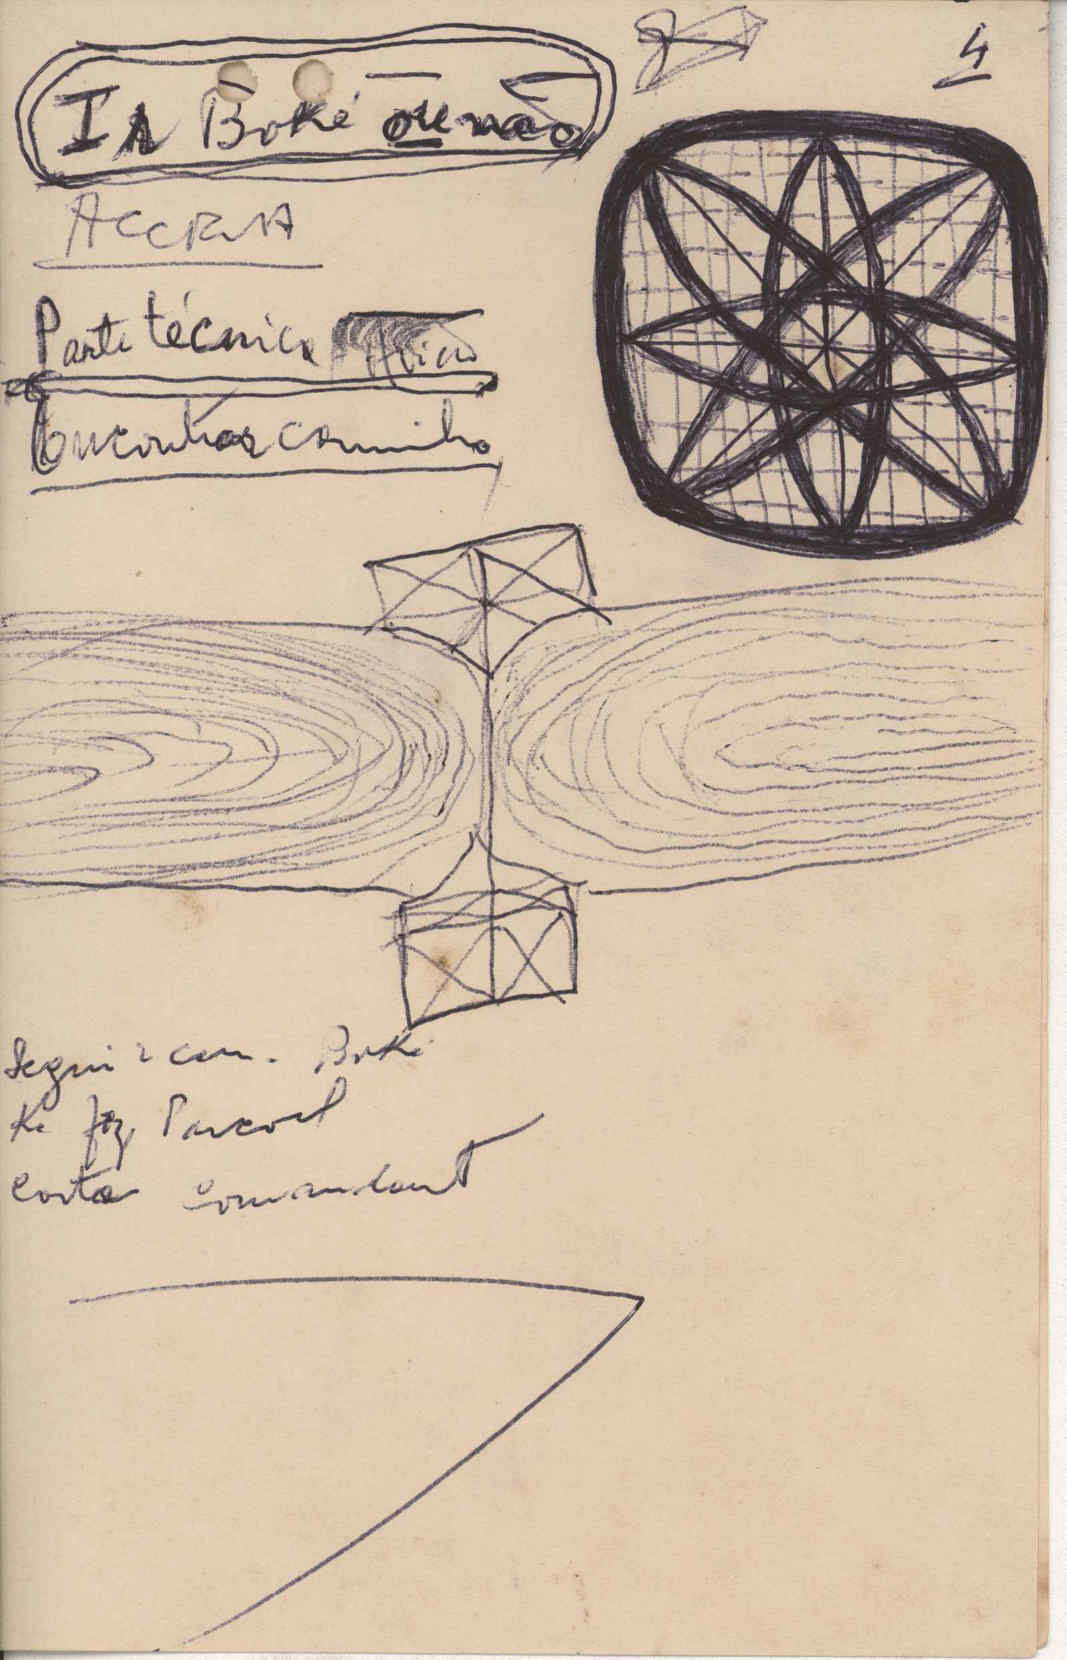 4
Ir Boké ou não
ACCRA
Parte técnica
Encontrar caminho
Seguir cam. Boké
Ke faz Pascoal
Costa comandant